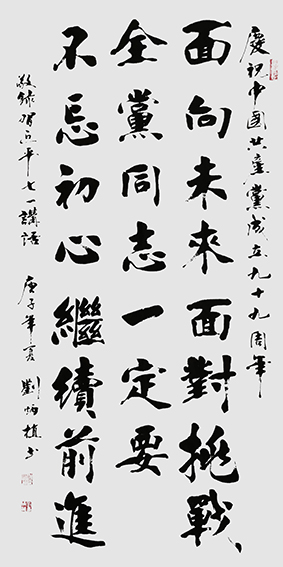 慶祝中國共產黨成立九十九周年
面向未來面對挑戰
全黨同志一定要
不忘初心繼續前進
敬錄習近平七一講話
庚子年夏劉炳植書